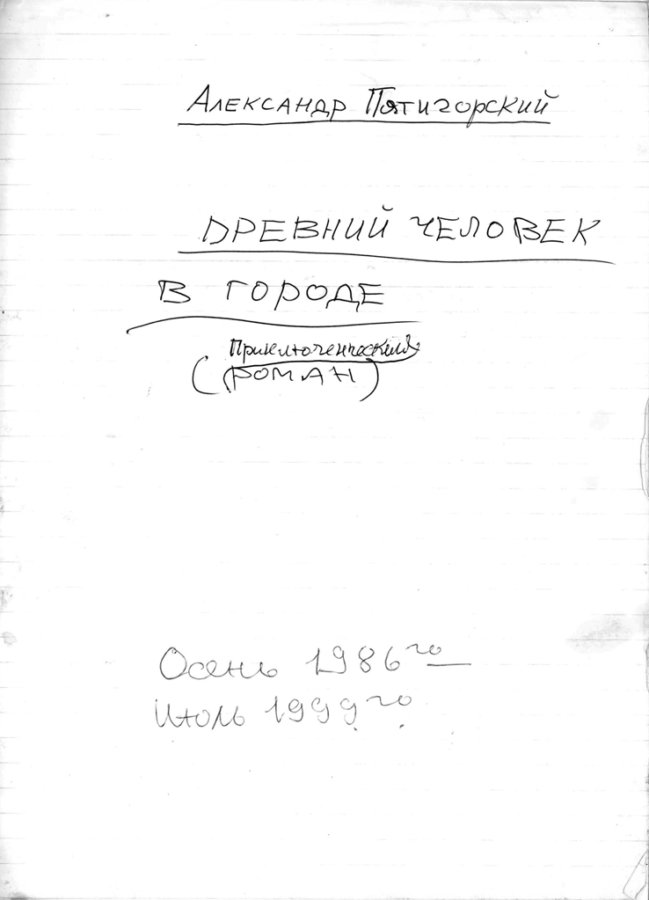 Александр Пятигорский
ДРЕВНИЙ ЧЕЛОВЕК
В ГОРОДЕ
Приключенческий
(РОМАН)
Осень 1986го
Июль 1999го